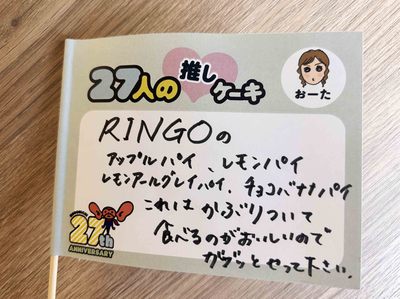 27人の推しケーキ
おーた
RINGOの
アップルパイ、レモンパイ
レモンアールグレイパイ、チョコバナナパイ
これは かぶりついて
食べるのがおいしいので
ガブッとやって下さい。
27th
ANNIVERSARY